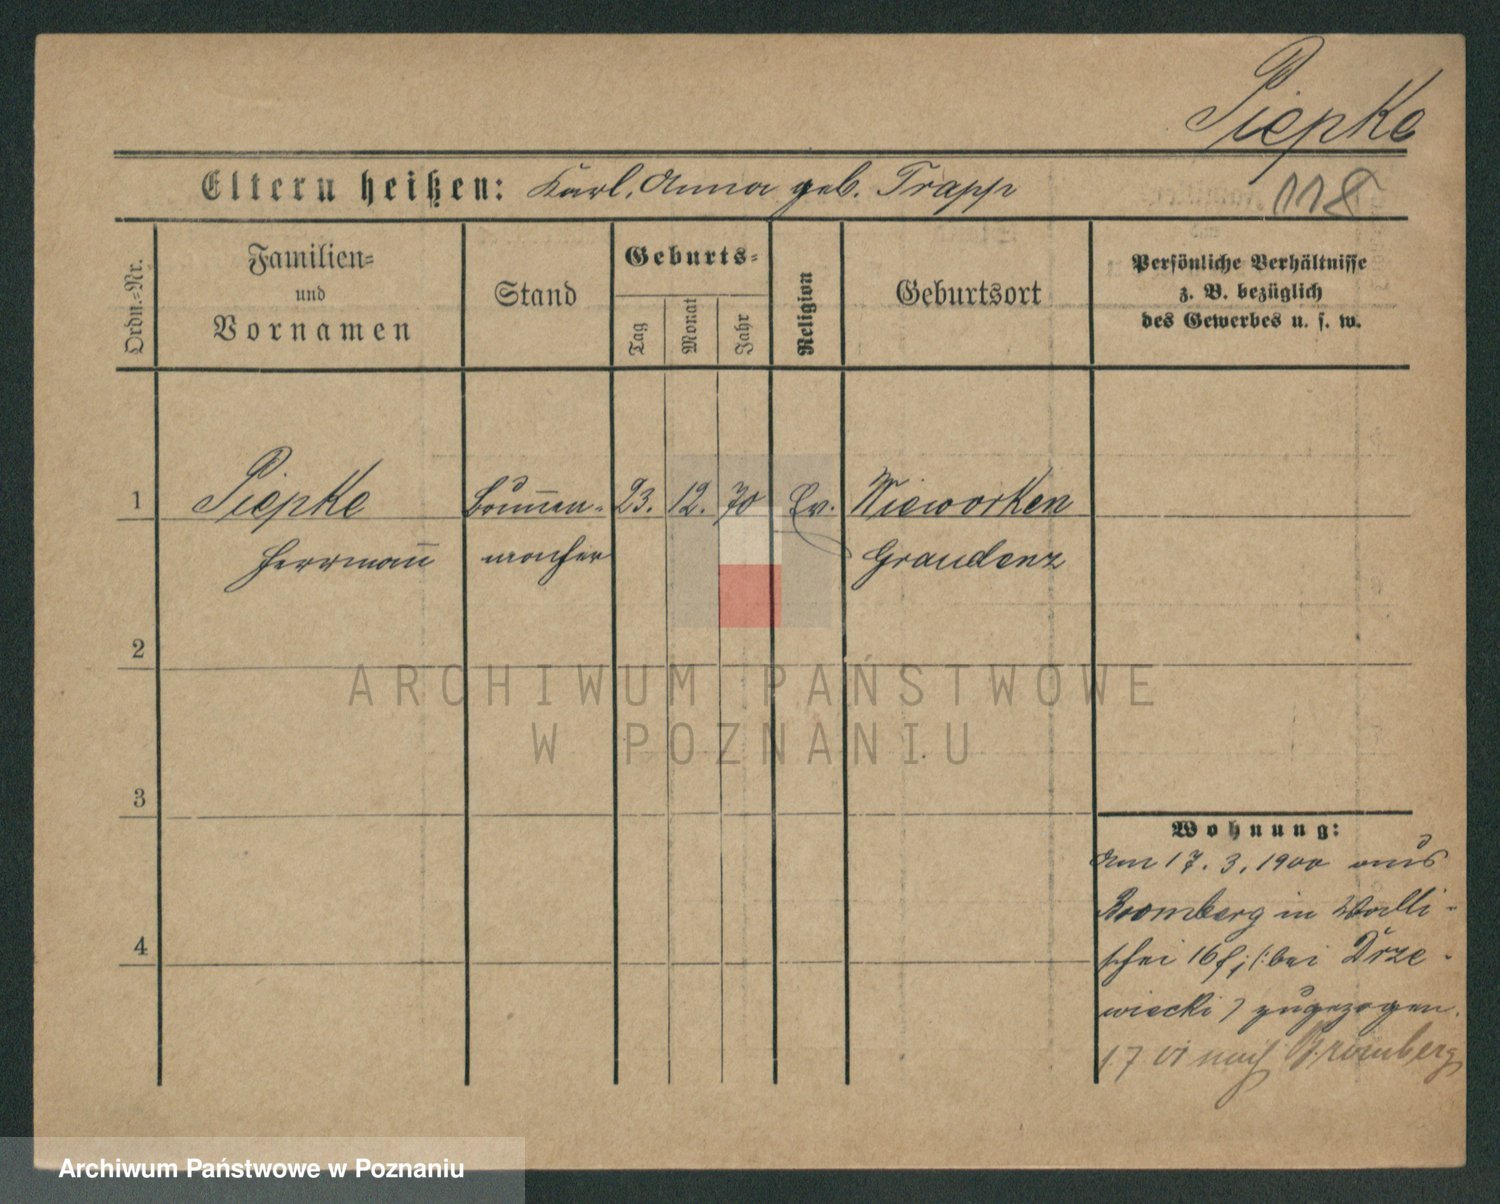 Piepke
Eltern heißen: Karl, Anna geb. Trapp
118
Ordn.=Nr.
Familien=
und
Vornamen
Stand
Geburts=
Tag
Monat
Jahr
Religion
Geburtsort
Persönliche Verhältnisse
z. B. bezüglich
des Gewerbes u. s. w.
1 Piepke 23. 12. 70 Ev. Nieworken
Herrmann macher Graudenz
2
3
4
Wohnung:
Am 17. 3. 1900 aus
Bromberg in Walli-
schei 16 (: bei Drze-
wiecki) zugezogen.
1.7 01 nach Bromberg
ARCHIWUM PAŃSTWOWE
W POZNANIU
Archiwum Państwowe w Poznaniu